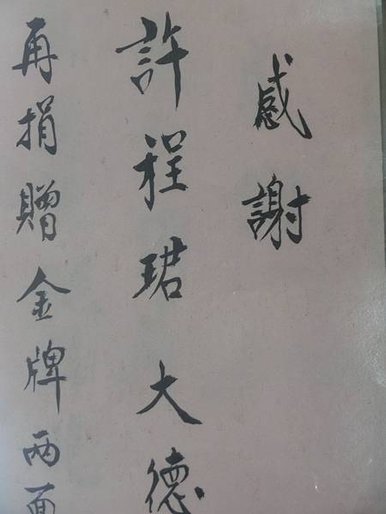 感謝
許程珺大德
再捐贈金牌两面